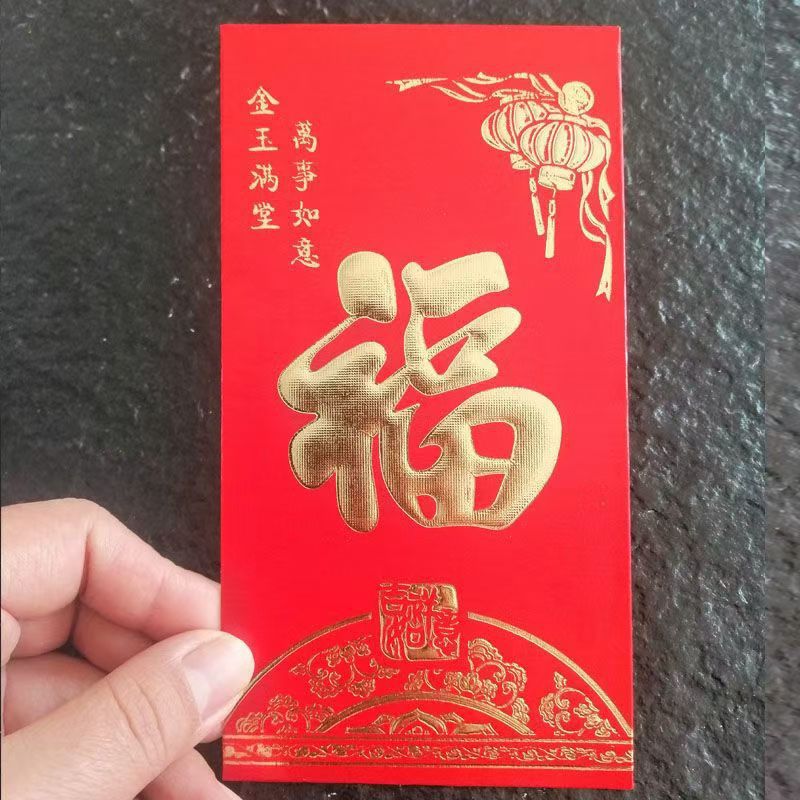 金玉满堂
萬事如意
福